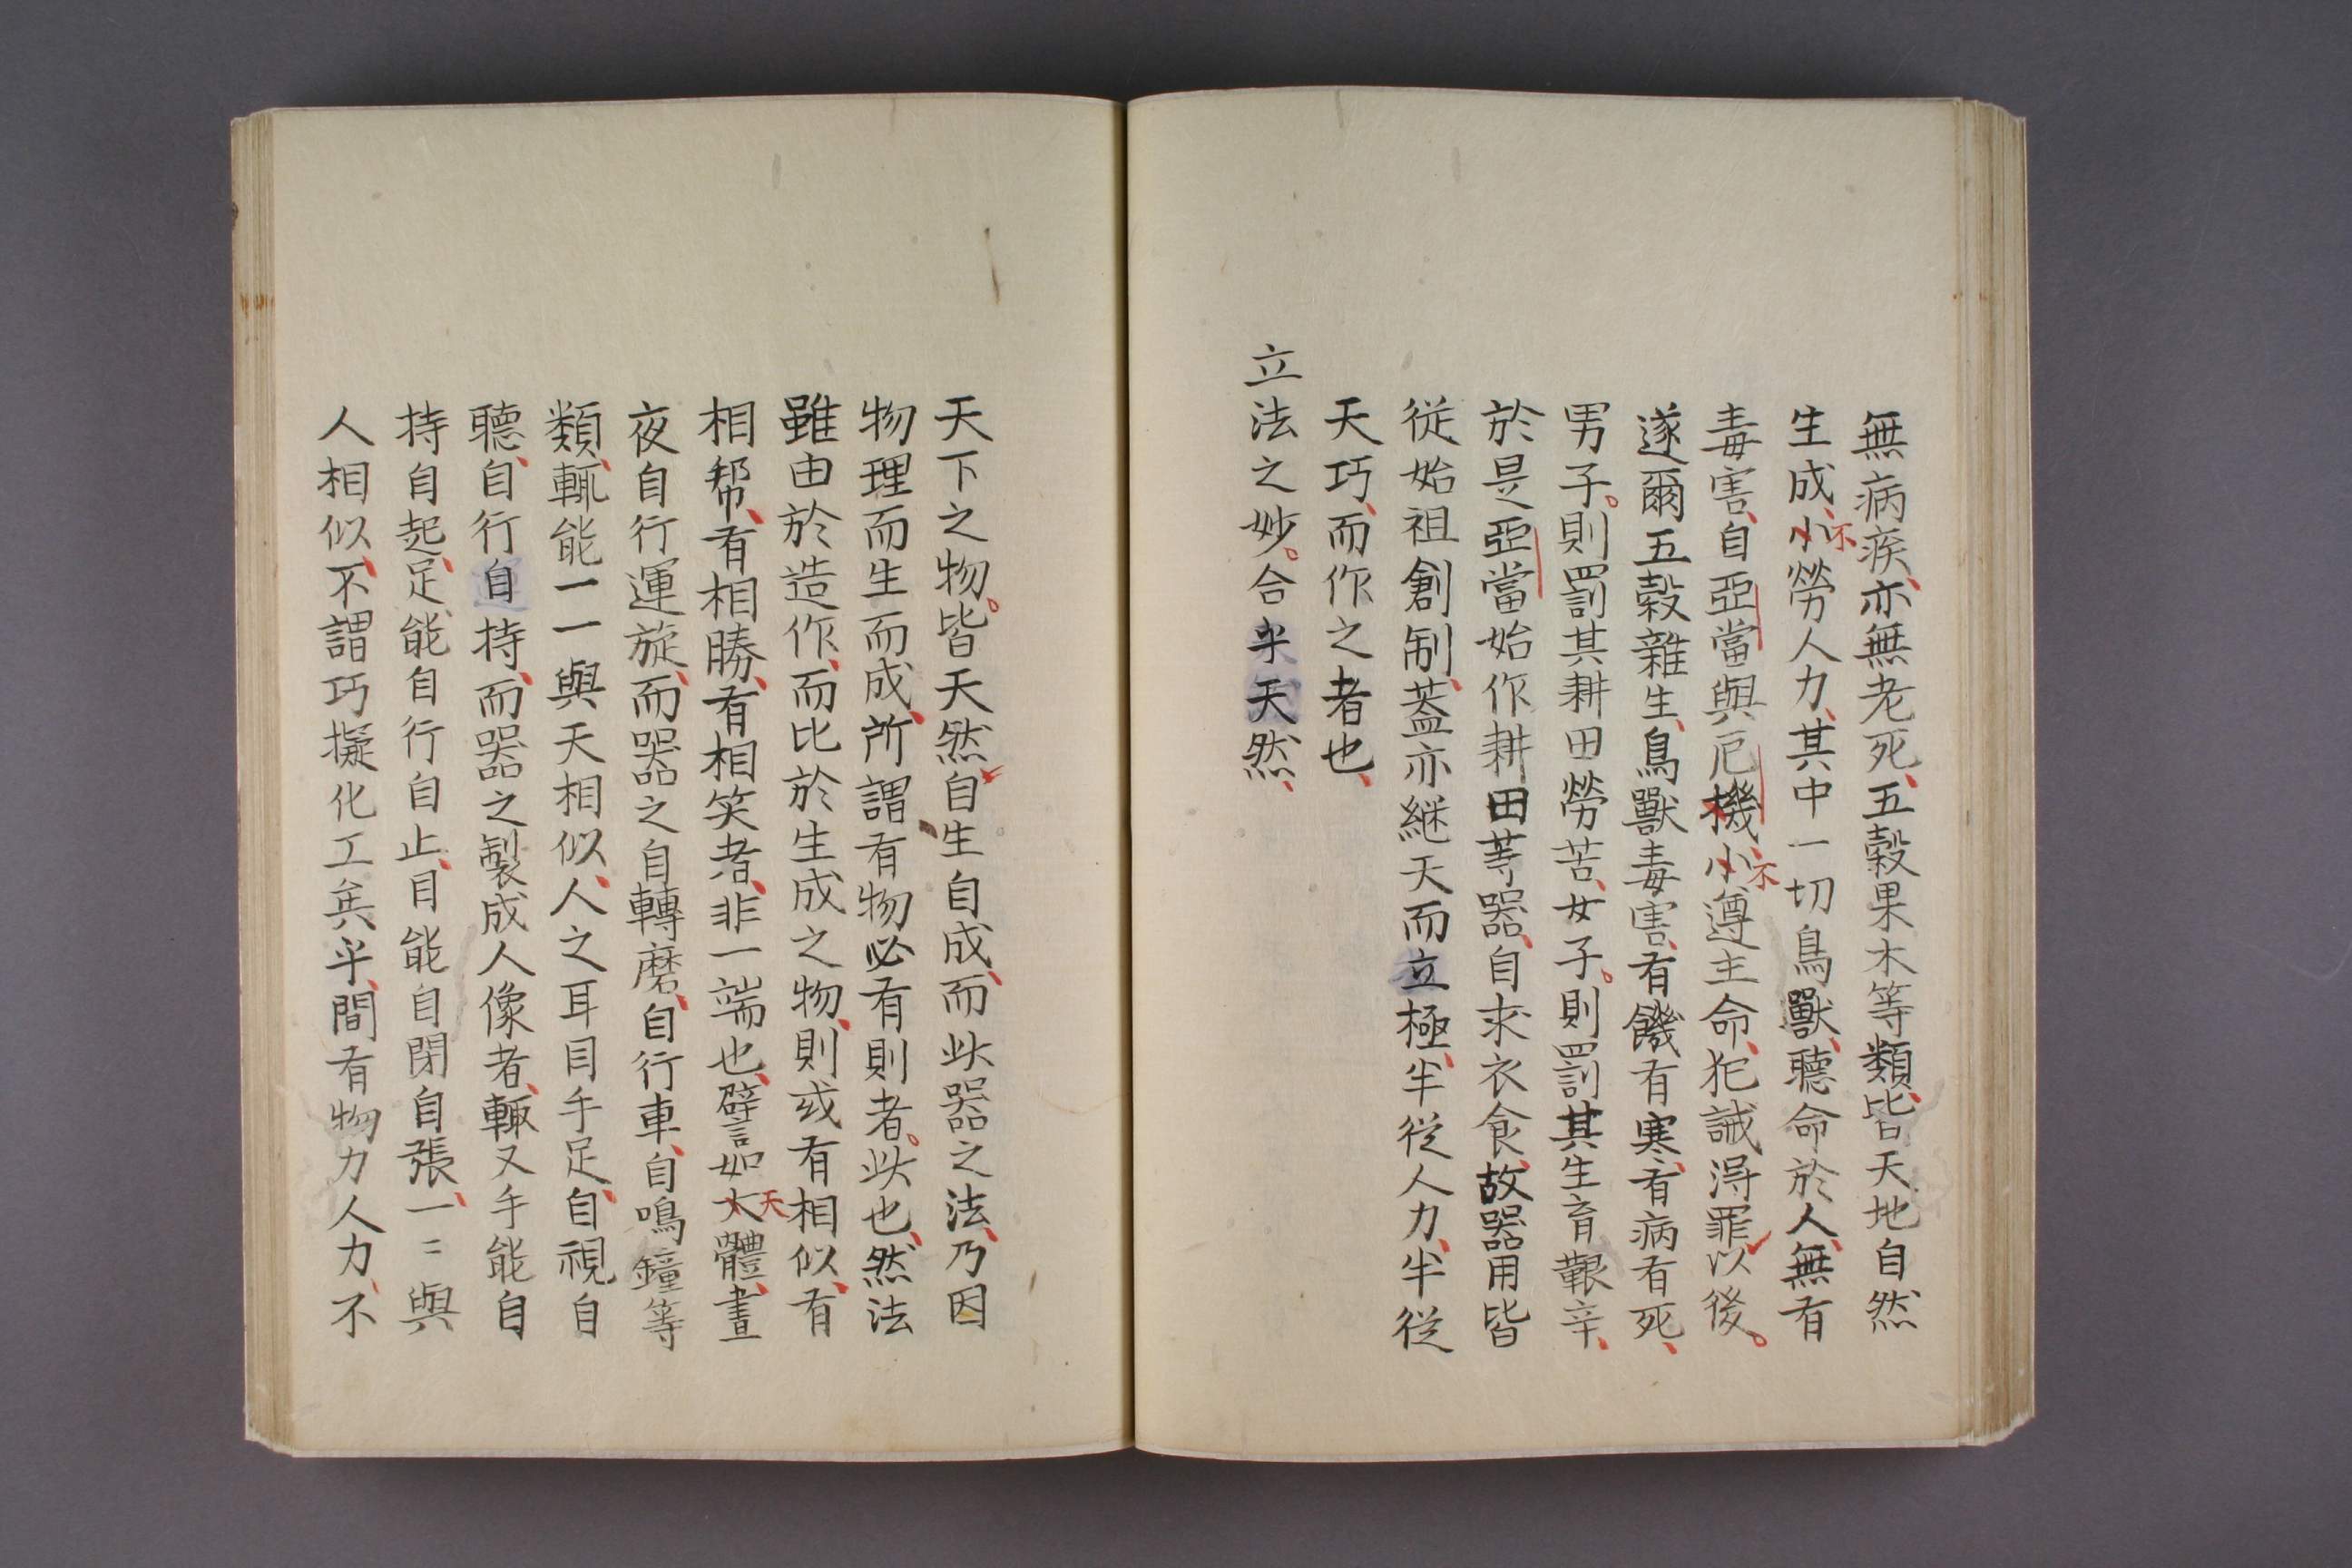 無病疾、亦無老死、五穀果木等類、皆天地自然
生成、小不勞人力、其中一切鳥獸、聽命於人、無有
毒害、自亞當與厄機、小不遵主命、犯誡淂罪以後。
遂爾五穀雜生、鳥獸毒害、有饑有寒、有病有死、
男子。則罰其耕田勞苦、女子。則罰其生育艱辛、
於是亞當始作耕田等器、自求衣食、故器用皆
從始祖創制、蓋亦継天而立極、半從人力、半從
天巧、而作之者也、
立法之妙。合乎天然、
天下之物。皆天然自生自成、而此器之法、乃因
物理而生而成、所謂有物必有則者。此也、然法
雖由於造作、而比於生成之物、則或有相似、有
相幫、有相勝、有相笑者、非一端也、譬如大天體、晝
夜自行運旋、而器之自轉磨、自行車、自鳴鐘等
類、輒能一一與天相似、人之耳目手足、自視自
聽、自行自持、而器之製成人像者、輒又手能自
持自起、足能自行自止、目能自閉自張、一二與
人相似、不謂巧擬化工矣乎、間有物力人力、不